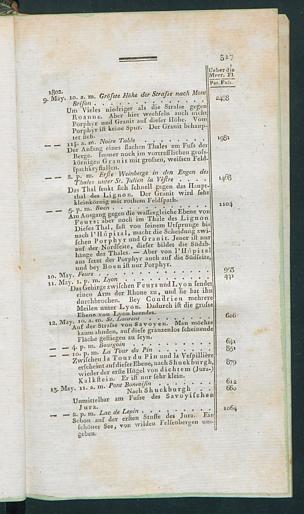 517
Ueber die
Meer. Fl.
Par. Fuſs.
1802.
9. May. 10. a. m. Gröſste Höhe der Straſse nach Mont
Briſon . . . 2488
Um Vieles niedriger als die Straſse gegen
Roanne. Aber hier wechſeln auch nicht
Porphyr und Granit auf dieſer Höhe. Vom
Porphyr iſt keine Spur. Der Granit behaup-
tet ſich.
— — a. m. Noire Table . . . 1981
Der Anfang eines flachen Thales am Fuſs der
Berge. Immer noch im vortrefflichen grobs-
körnigen Granit mit groſsen, weiſsen Feld-
ſpathkryſtallen.
— — 2. p. m. Erſte Weinberge in den Engen des
Thales unter St. Julien la Veſtre . . . 1468
Das Thal ſenkt ſich ſchnell gegen das Haupt-
thal des Lignon. Der Granit wird ſehr
kleinkörnig mit rothem Feldſpath.
— — 5. p. m. Boen . . . 1104
Am Ausgang gegen die waſſergleiche Ebene von
Feurs; aber noch im Thale des Lignon
Dieſes Thal, faſt von ſeinem Urſprunge bis
nach l'Hôpital, macht die Scheidung zwi-
ſchen Porphyr und Granit. Jener iſt nur
auf der Nordſeite, dieſer bildet die Südab-
hänge des Thales. — Aber von l'Hôpital
aus ſetzt der Porphyr auch auf die Südſeite,
und bey Boen iſt nur Porphyr.
10. May. Feurs . . .
11. May. 1. p. m. Lyon . . .
Das Gebirge zwiſchen Feurs und Lyon ſendet
einen Arm der Rhone zu, und ſie hat ihn
durchbrochen. Bey Condrieu mehrere
Meilen unter Lyon. Dadurch iſt die groſse
Ebene von Lyon beendet.
12. May. 10. a. m. St. Laurent . . . 606
Auf der Straſse von Savoyen. Man möchte
kaum ahnden, auf dieſe gränzenlos ſcheinende
Fläche geſtiegen zu ſeyn.
— — 4. p. m. Bourgoin . . . 641
— — 10. p. m. La Tour du Pin . . . 851
Zwiſchen la Tour du Pin und la Veſpillière
erſcheint auf dieſer Ebene, nach Shuckburgh, 879
wieder der erſte Hügel von dichtem (Jura-)
Kalkſtein. Er iſt nur ſehr klein.
13. May. 11. a. m. Pont Bonvoiſin . . . 612
Nach Shuckburgh . . . 660
Unmittelbar am Fuſse des Savoyiſchen
Jura.
— — 2. p. m. Lac de Lapin . . . 1064
Schon auf der erſten Stuffe des Jura. Ein
ſchöner See, von wilden Felſenbergen um-
geben.